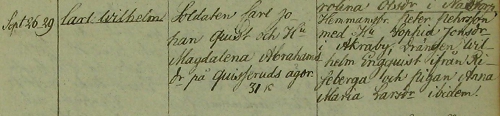 Sept 26 29
Carl Wilhelm
Soldaten Carl Jo
han Quist och Hu
Magdalena Abraham
dr på Quistruds ägor.
31
Olsdr i
Hemmansbr. Peter Pehrsson
med Hu Sophia Jonsdr
i Åkraby, Drängen Wil
helm Engquist ifrån Ri
seberga och Pigan Anna
Maria Larsdr ibidem.